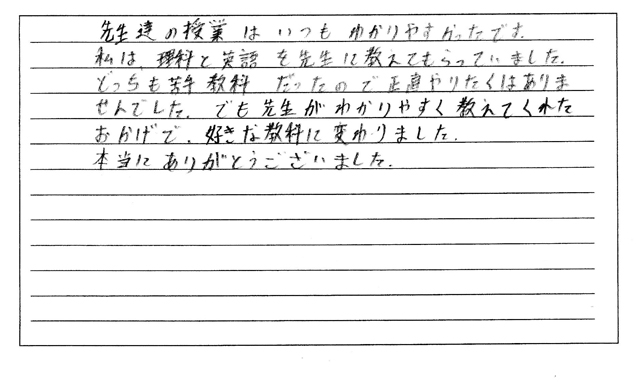 先生達の授業はいつもわかりやすかったです。
私は、理科と英語を先生に教えてもらっていました。
どっちも苦手教科だったので正直やりたくはありま
せんでした。でも先生がわかりやすく教えてくれた
おかげで、好きな教科に変わりました。
本当にありがとうございました。